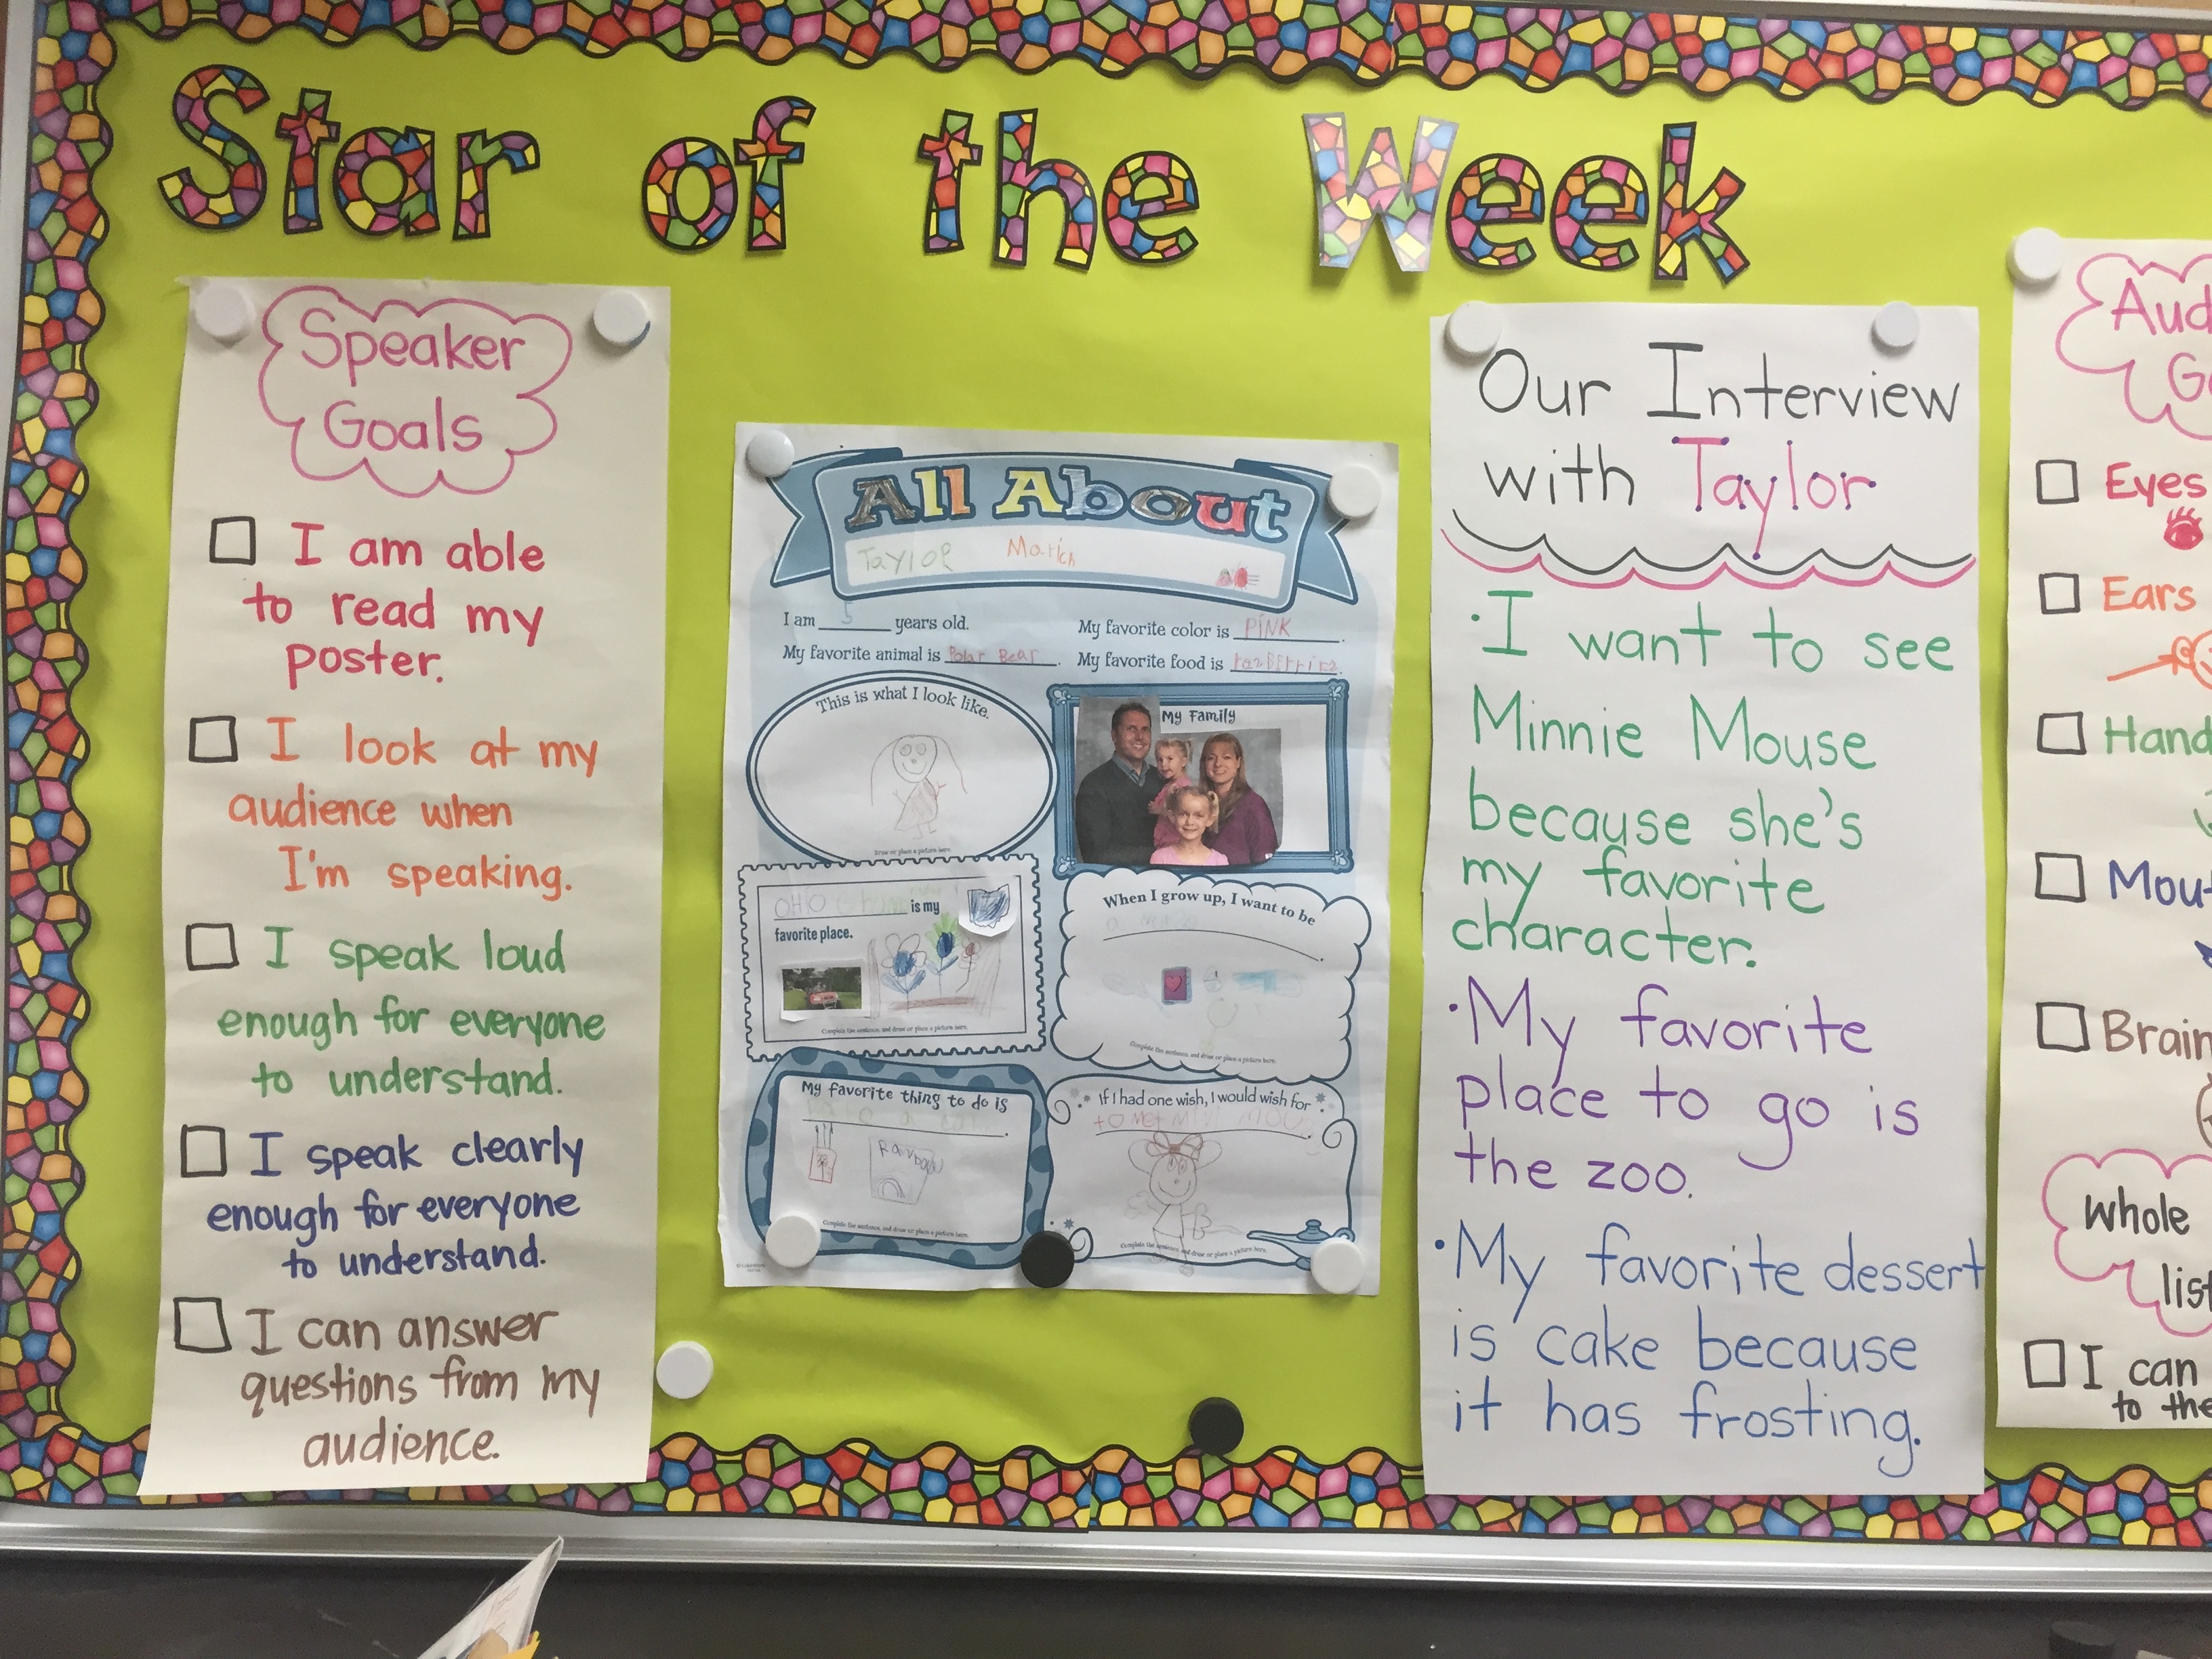 Star of the Week
Speaker
Goals
I am able
to read my
poster.
I look at my
audience when
I'm speaking.
I speak loud
enough for everyone
to understand.
I speak clearly
enough for everyone
to understand.
I can answer
questions from my
audience.
All About
Taylor Marich
I am 5 years old.
My favorite color is PINK.
My favorite animal is Polar Bear.
My favorite food is
This is what I look like.
Draw or place a picture here.
My Family
OHIO is my
favorite place.
Complete the sentence, and draw or place a picture here.
When I grow up, I want to be
Complete the sentence, and draw or place a picture here.
My favorite thing to do is
Complete the sentence, and draw or place a picture here.
If I had one wish, I would wish for
Complete the sentence, and draw or place a picture here.
Our Interview
with Taylor
• I want to see
Minnie Mouse
because she's
my favorite
character.
• My favorite
place to go is
the zoo.
• My favorite dessert
is cake because
it has frosting.
Eyes
Ears
Hand
Brain
whole
I can
to the